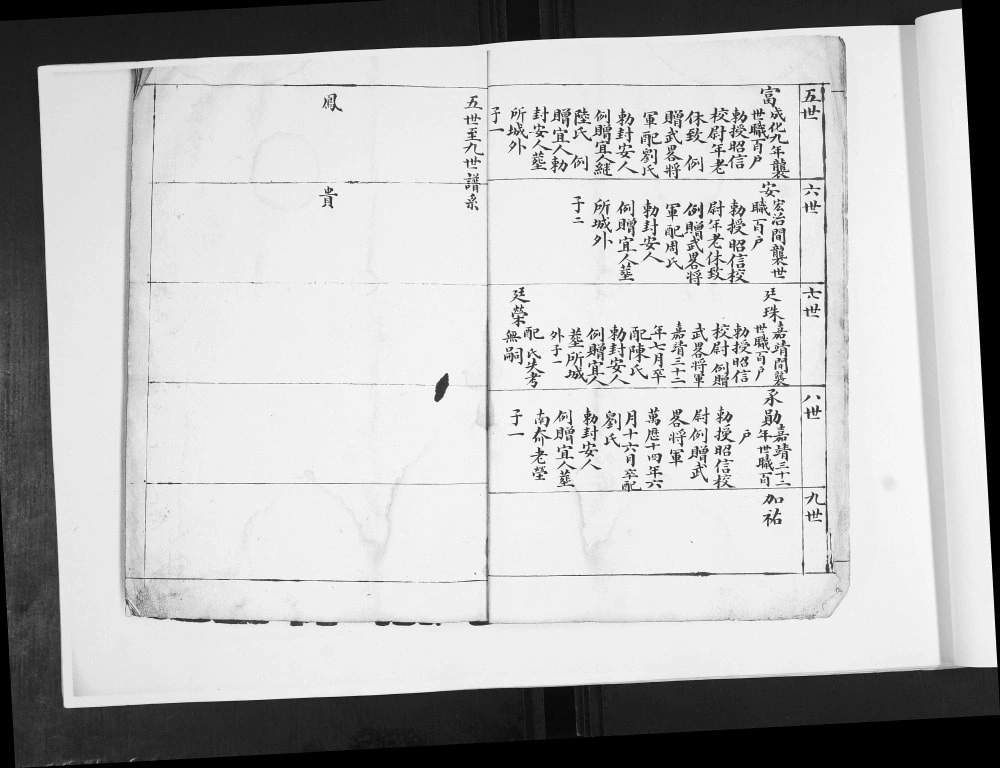 五世
富
成化九年襲
世職百戶
勅授昭信
校尉年老
休致 例
贈武畧將
軍配劉氏
勅封安人
例贈宜人繼
陸氏 例
贈宜人勅
封安人塟
所城外
子一
六世
安
宏治間襲世
職百戶
勅授昭信校
尉年老休致
例贈武畧將
軍配周氏
勅封安人
例贈宜人塟
所城外
子二
七世
廷珠
嘉靖間襲
世職百戶
勅授昭信
校尉 例贈
武畧將軍
嘉靖三十二
年七月卒
配陳氏
勅封安人
例贈宜人
塟所城
外子一
廷榮
配 氏失考
無嗣
八世
承勛
嘉靖三十二
年世職百
戶
勅授昭信校
尉例贈武
畧將軍
萬歷十四年六
月十六日卒配
劉氏
勅封安人
例贈宜人塟
南夼老塋
子一
九世
加祐
五世至九世譜系
鳳
貴